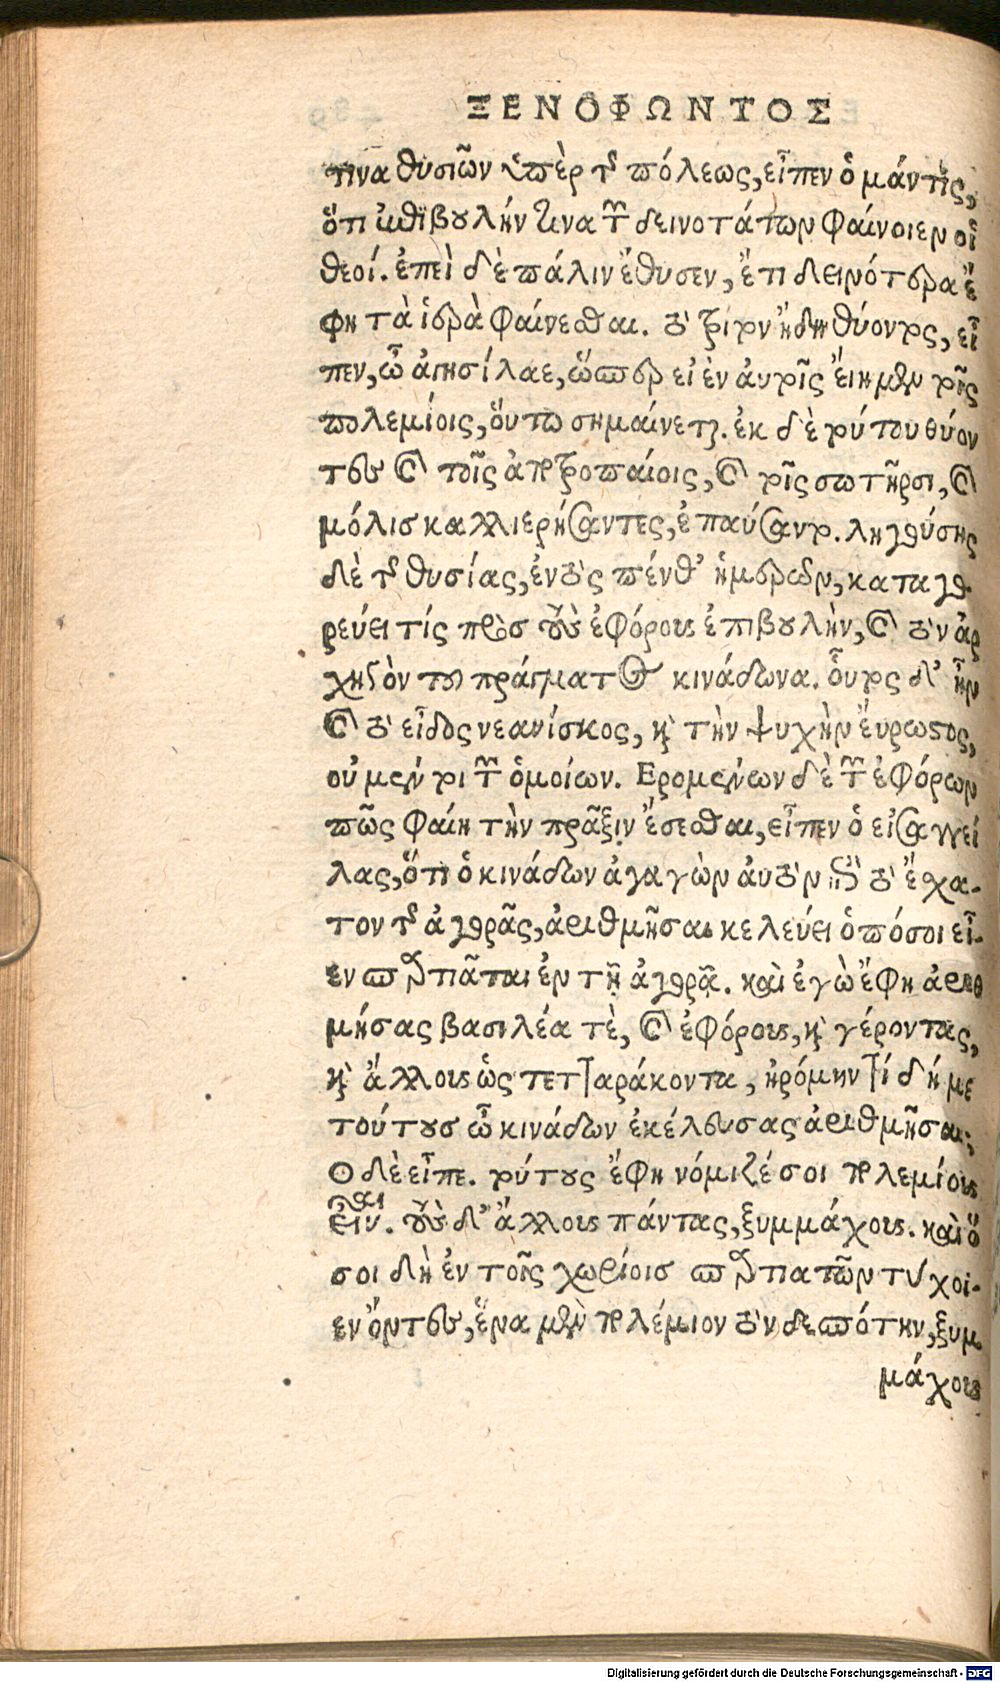 ΞΕΝΟΦΩΝΤΟΣ
τινα θυσιῶν ὑπὲρ τῆς πόλεως, εἶπεν ὁ μάντις,
ὅτι ἐπιβουλήν τινα τῶν δεινοτάτων φαίνοιεν οἱ
θεοί. ἐπεὶ δὲ πάλιν ἔθυσεν, ἔτι δεινότερα ἔ
φη τὰ ἱερὰ φαίνεσθαι. τὸ τρίτον ἤδη θύοντος, εἶ
πεν, ὦ ἀγησίλαε, ὥσπερ εἰ ἐν αὐτοῖς εἴημεν τοῖς
πολεμίοις, οὕτω σημαίνεται. ἐκ δὲ τούτου θύον
τες καὶ τοῖς ἀποτροπαίοις, καὶ τοῖς σωτῆρσι, καὶ
μόλις καλλιερήσαντες, ἐπαύσαντο. ληγούσης
δὲ τῆς θυσίας, ἐντὸς πένθ’ ἡμερῶν, καταγο-
ρεύει τίς πρὸς τοὺς ἐφόρους ἐπιβουλὴν, καὶ τὸν ἀρ
χηγὸν τοῦ πράγματος κινάδωνα. οὗτος δ’ ἦν
καὶ τὸ εἶδος νεανίσκος, καὶ τὴν ψυχὴν εὔρωστος,
οὐ μέντοι τῶν ὁμοίων. Ερομένων δὲ τῶν ἐφόρων
πῶς φαίη τὴν πρᾶξιν ἔσεσθαι, εἶπεν ὁ εἰσαγγεί
λας, ὅτι ὁ κινάδων ἀγαγὼν αὐτὸν ἐπὶ τὸ ἔσχα-
τον τῆς ἀγορᾶς, ἀριθμῆσαι κελεύει ὁπόσοι εἶ-
εν σπαρτιᾶται ἐν τῇ ἀγορᾷ. καὶ ἐγὼ ἔφη ἀριθ
μήσας βασιλέα τὲ, καὶ ἐφόρους, καὶ γέροντας,
καὶ ἄλλους ὡς τετταράκοντα, ἠρόμην τί δή με
τούτους ὦ κινάδων ἐκέλευσας ἀριθμῆσαι;
Ο δὲ εἶπε. τούτους ἔφη νόμιζέ σοι πολεμίους
εἶναι. τοὺς δ’ ἄλλους πάντας, ξυμμάχους. καὶ ὅ
σοι δὴ ἐν τοῖς χωρίοις σπαρτιατῶν τύχοι-
εν ὄντες, ἕνα μὲν πολέμιον τὸν δεσπότην, ξυμ
μάχους
Digitalisierung gefördert durch die Deutsche Forschungsgemeinschaft - DFG